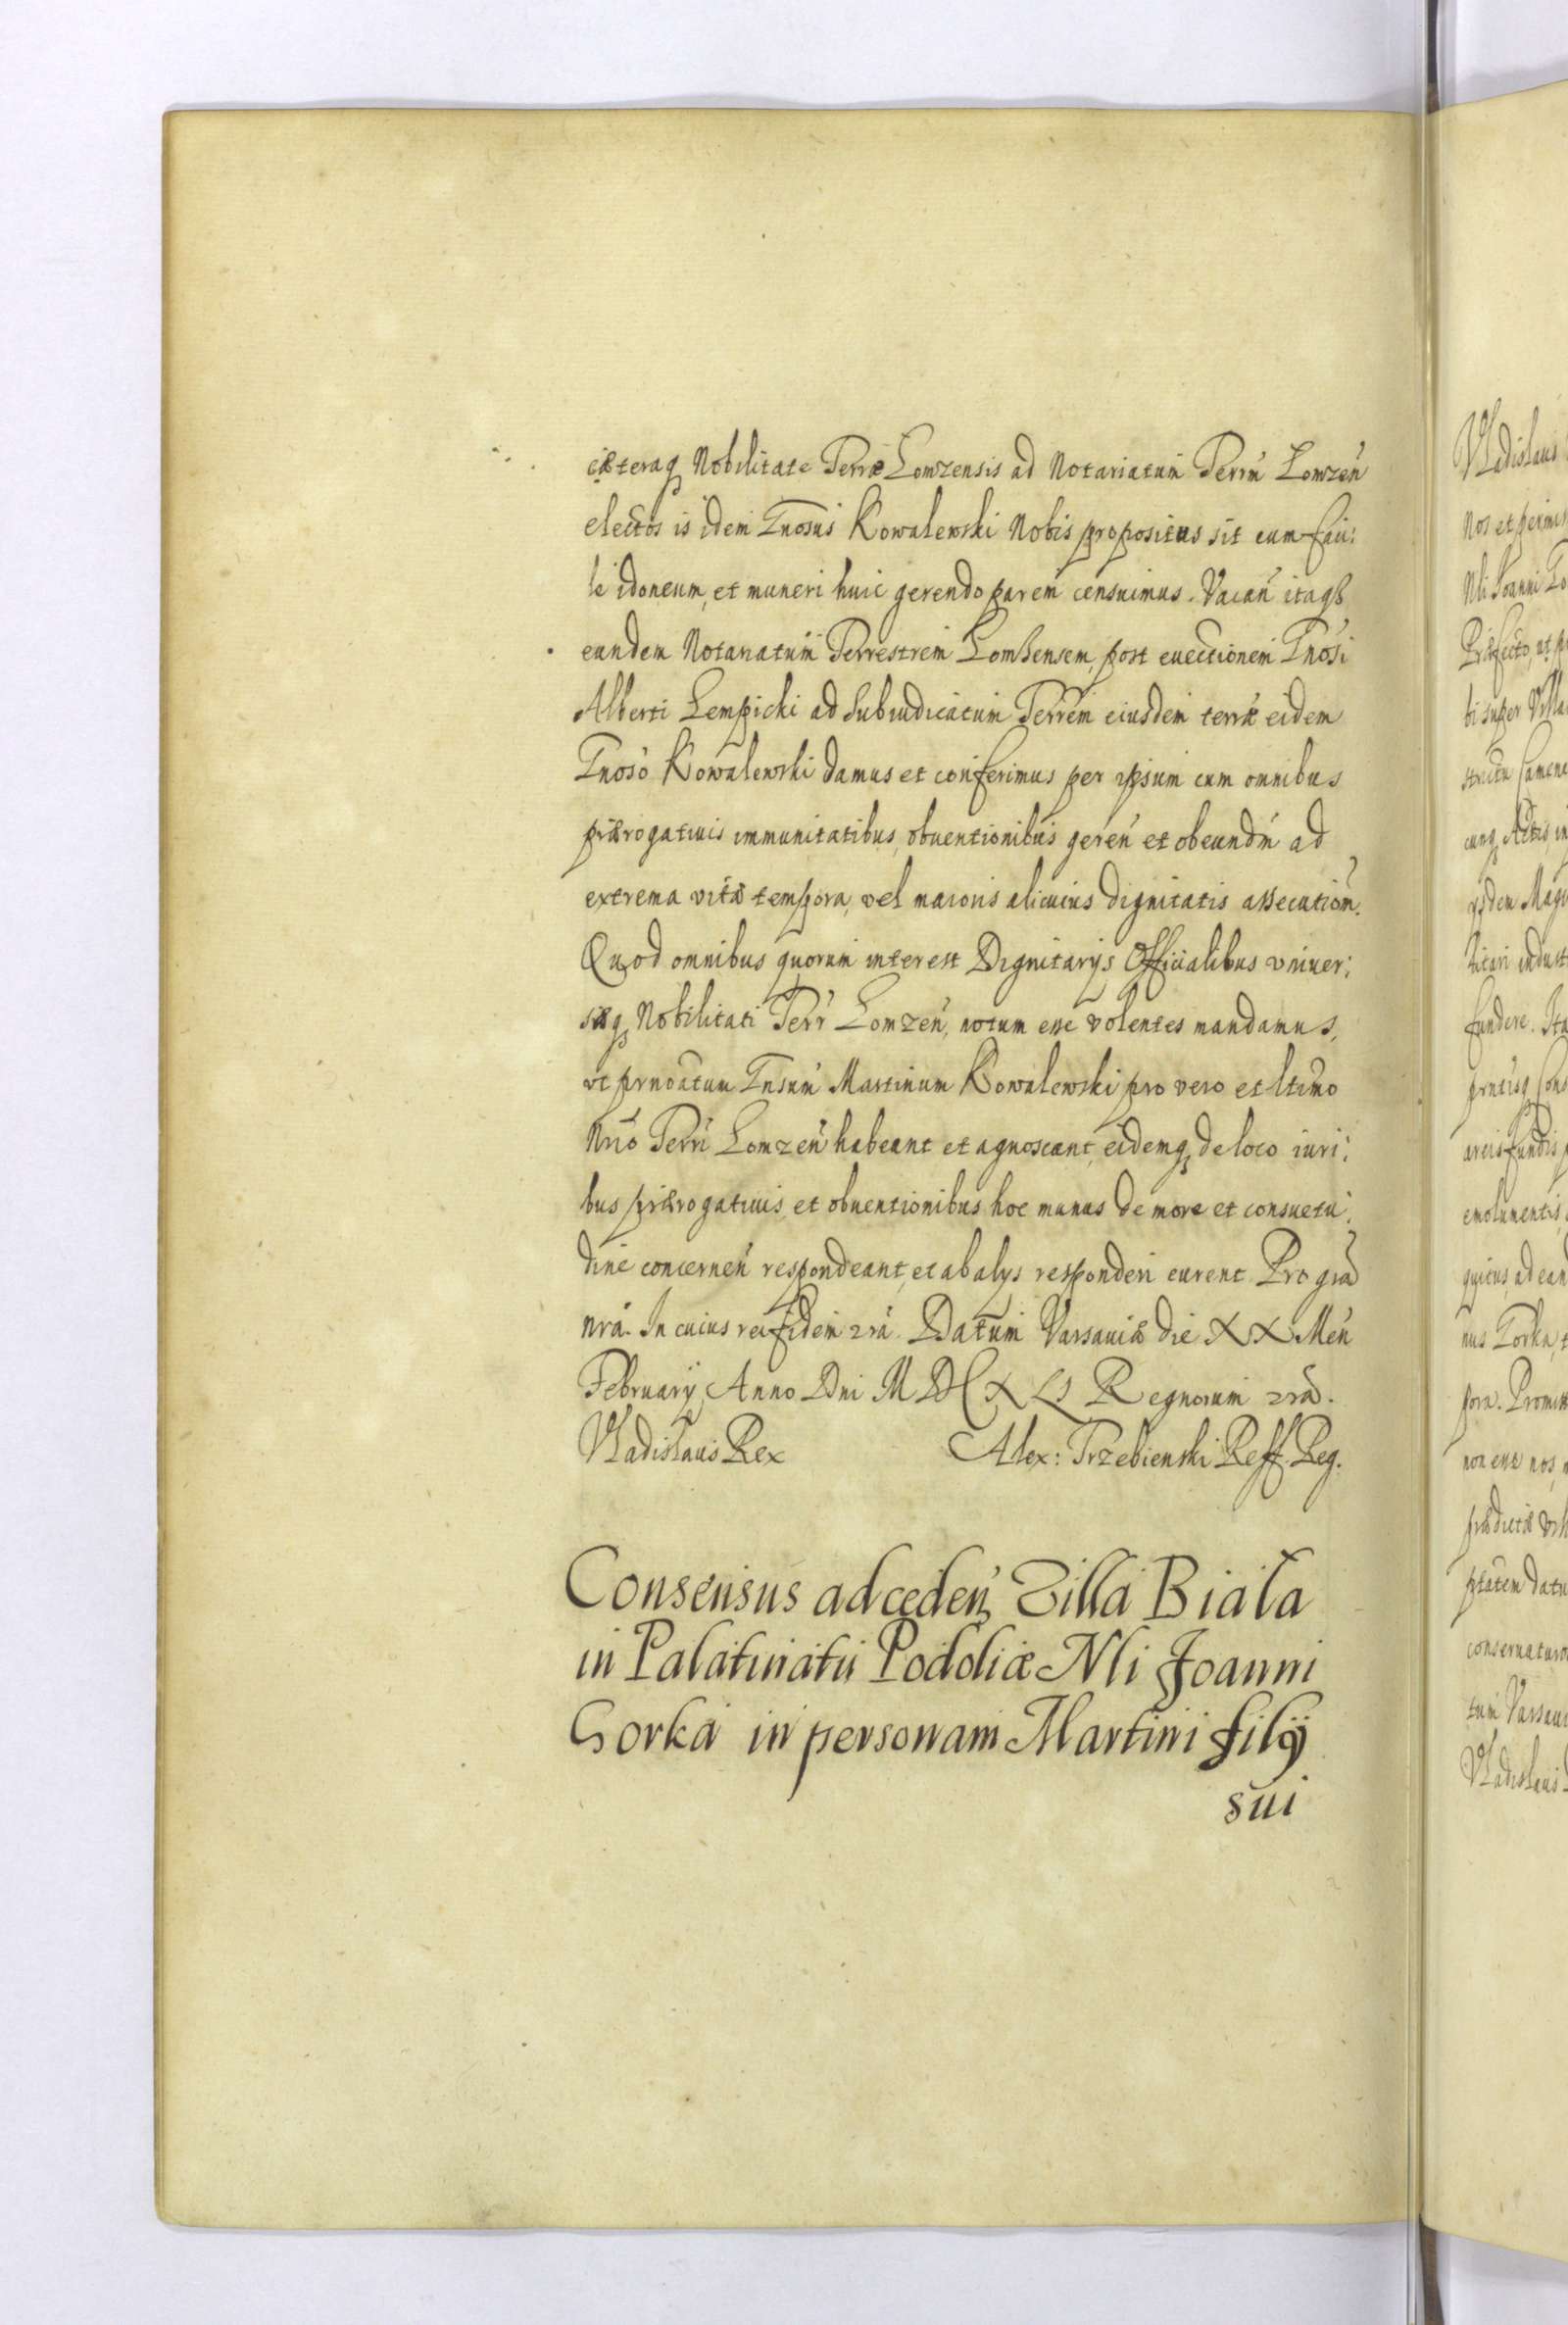 cæteraq Nobilitate Terræ Lomzensis ad Notariatum Terrń Lomzeń
electos is idem Gnosus Kowalewski Nobis propositus sit eum fąci:
le idoneum, et muneri huic gerendo parem censuimus. Vacań itaqȝ
eundem Notariatum Terrestrem Lomzensem, post euectionem Gnosi
Alberti Lempicki ad Subiudicatum Terrem eiusdem terræ eidem
Gnoso Kowalewski damus et conferimus per ipsum cum omnibus
prærogatiuis immunitatibus, obuentionibus gereń et obeundń ad
extrema vitæ tempora, vel maioris alicuius dignitatis assecutiom.
Quod omnibus quorum interest Dignitarijs Officialibus vniuer:
sæq Nobilitati Terr Lomzeń, notum esse volentes mandamus,
vt prnoatum Gnsum Martinum Kowalewski pro vero et ltimo
Nrio Terrń Lomzeń habeant et agnoscant, eidemq de loco iuri:
bus prærogatiuis et obuentionibus hoc munus de more et consuetu:
dine concerneń respondeant, et ab alys responderi curent Pro gra
nra. In cuius rei fidem Datum Varsauiæ die XX Meń
February Anno Dni M D C X LI Regnorum nra.
Vladislaus Rex Alex: Trzebienski Reff. Reg.
Consensus ad cedeń Villa Biała
in Palatinatu Podoliæ Nli Joanni
Gorka in personam Martini filij
sui
Vladislaus
Nos et permis
Nli Joanni Go
Præfecto, ut p
bi super Villa
strictu Camene
cunq Actis, in
fundere. Ita
prntisq Cons
emolumentis,
nus Gorka, e
pora. Promitt
non esse nos,
ptatem datu
conseruaturo
tum Varsaui
Vladislaus